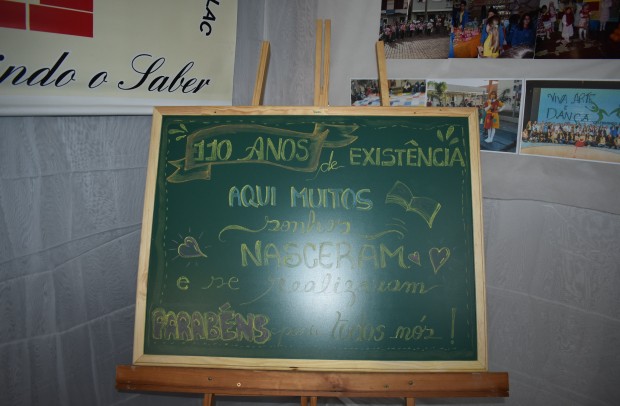 LAC
indo o Saber
VIVA ARTE
DANÇA
110 ANOS de EXISTÊNCIA
AQUI MUITOS
sonhos
NASCERAM
e se realizaram
PARABÉNS para todos nós!